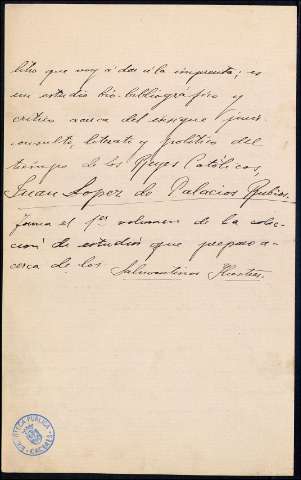 libro que voy á dar á la imprenta; es
un estudio bio-bibliográfico y
crítico acerca del insigne juris-
consulto, literato y político del
tiempo de los Reyes Católicos,
Juan Lopez de Palacios Rubios.
Forma el 1er volumen de la colec-
ción de estudios que preparo a-
cerca de los Salmantinos Ilustres.
BIBLIOTECA PUBLICA
CACERES